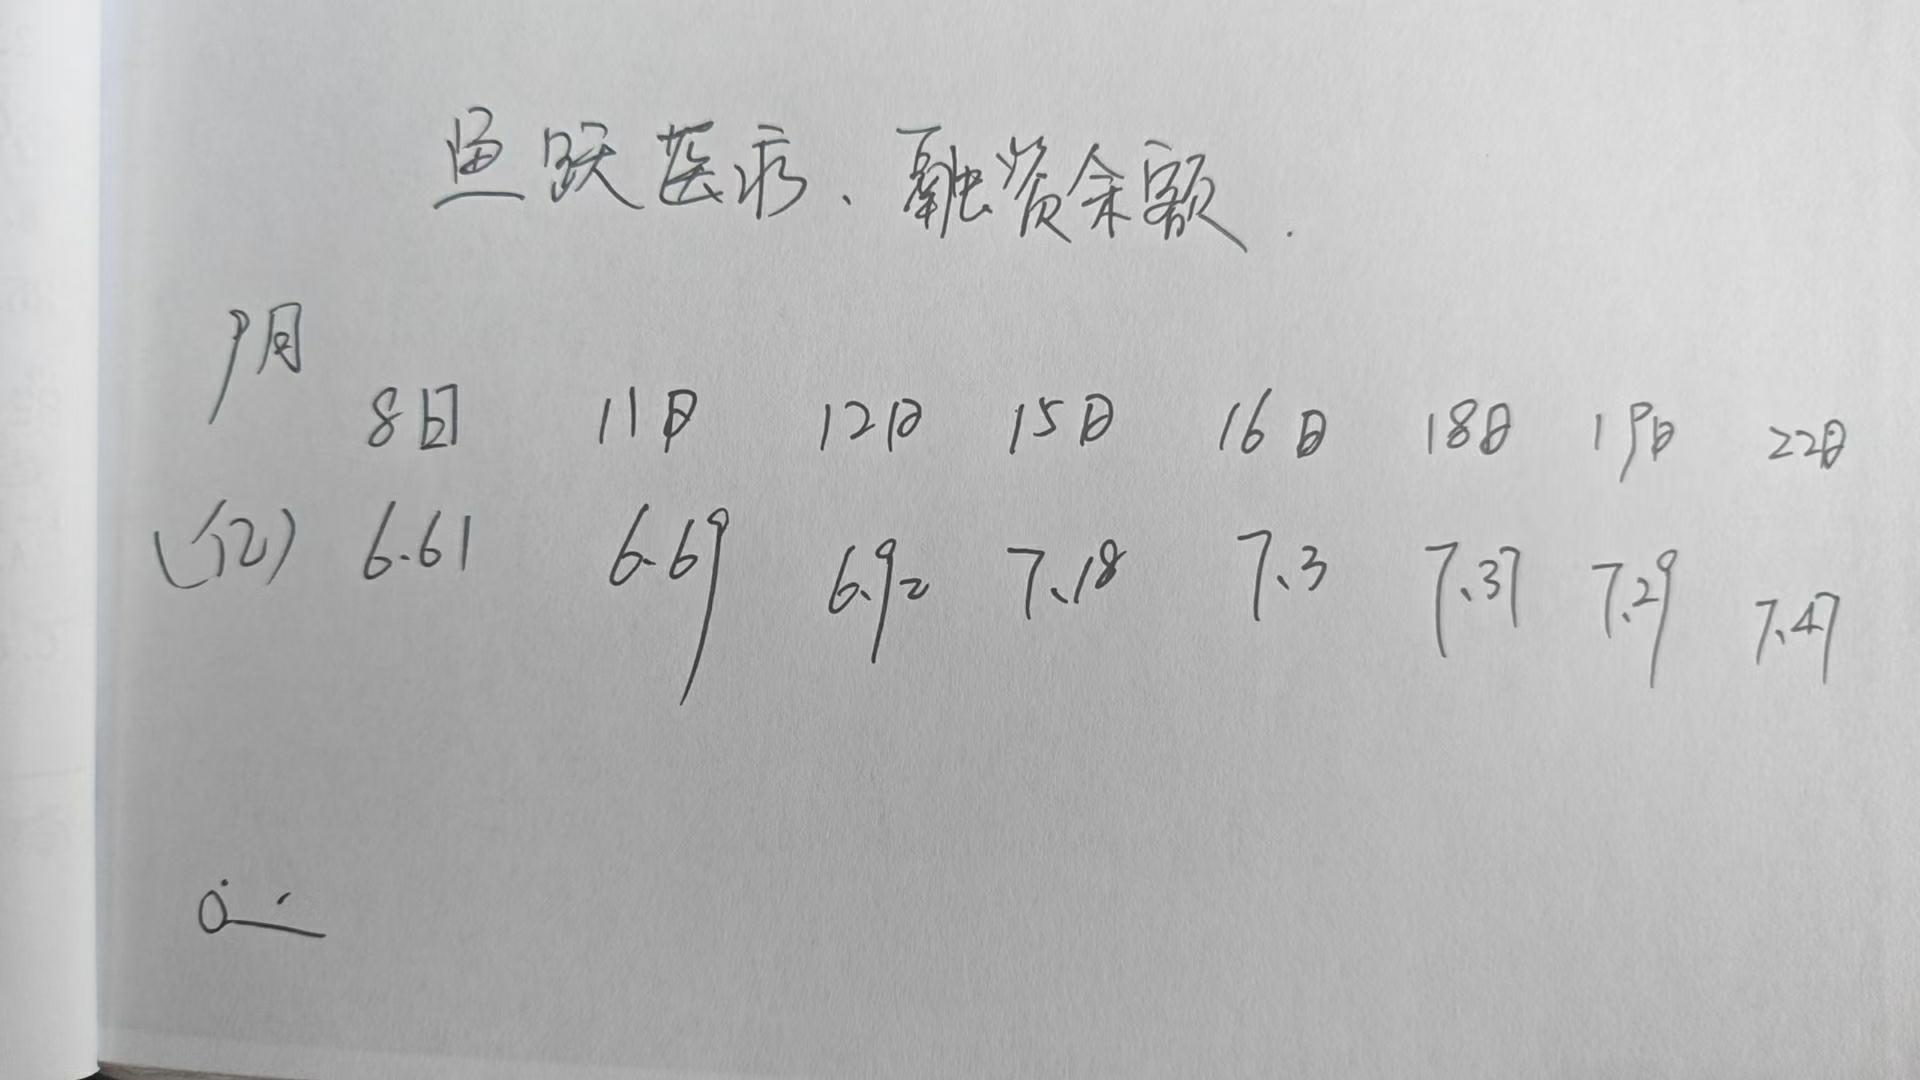 鱼跃医疗、融资余额.
9月
8日 11日 12日 15日 16日 18日 19日 22日
(亿) 6.61 6.69 6.92 7.18 7.3 7.37 7.29 7.47